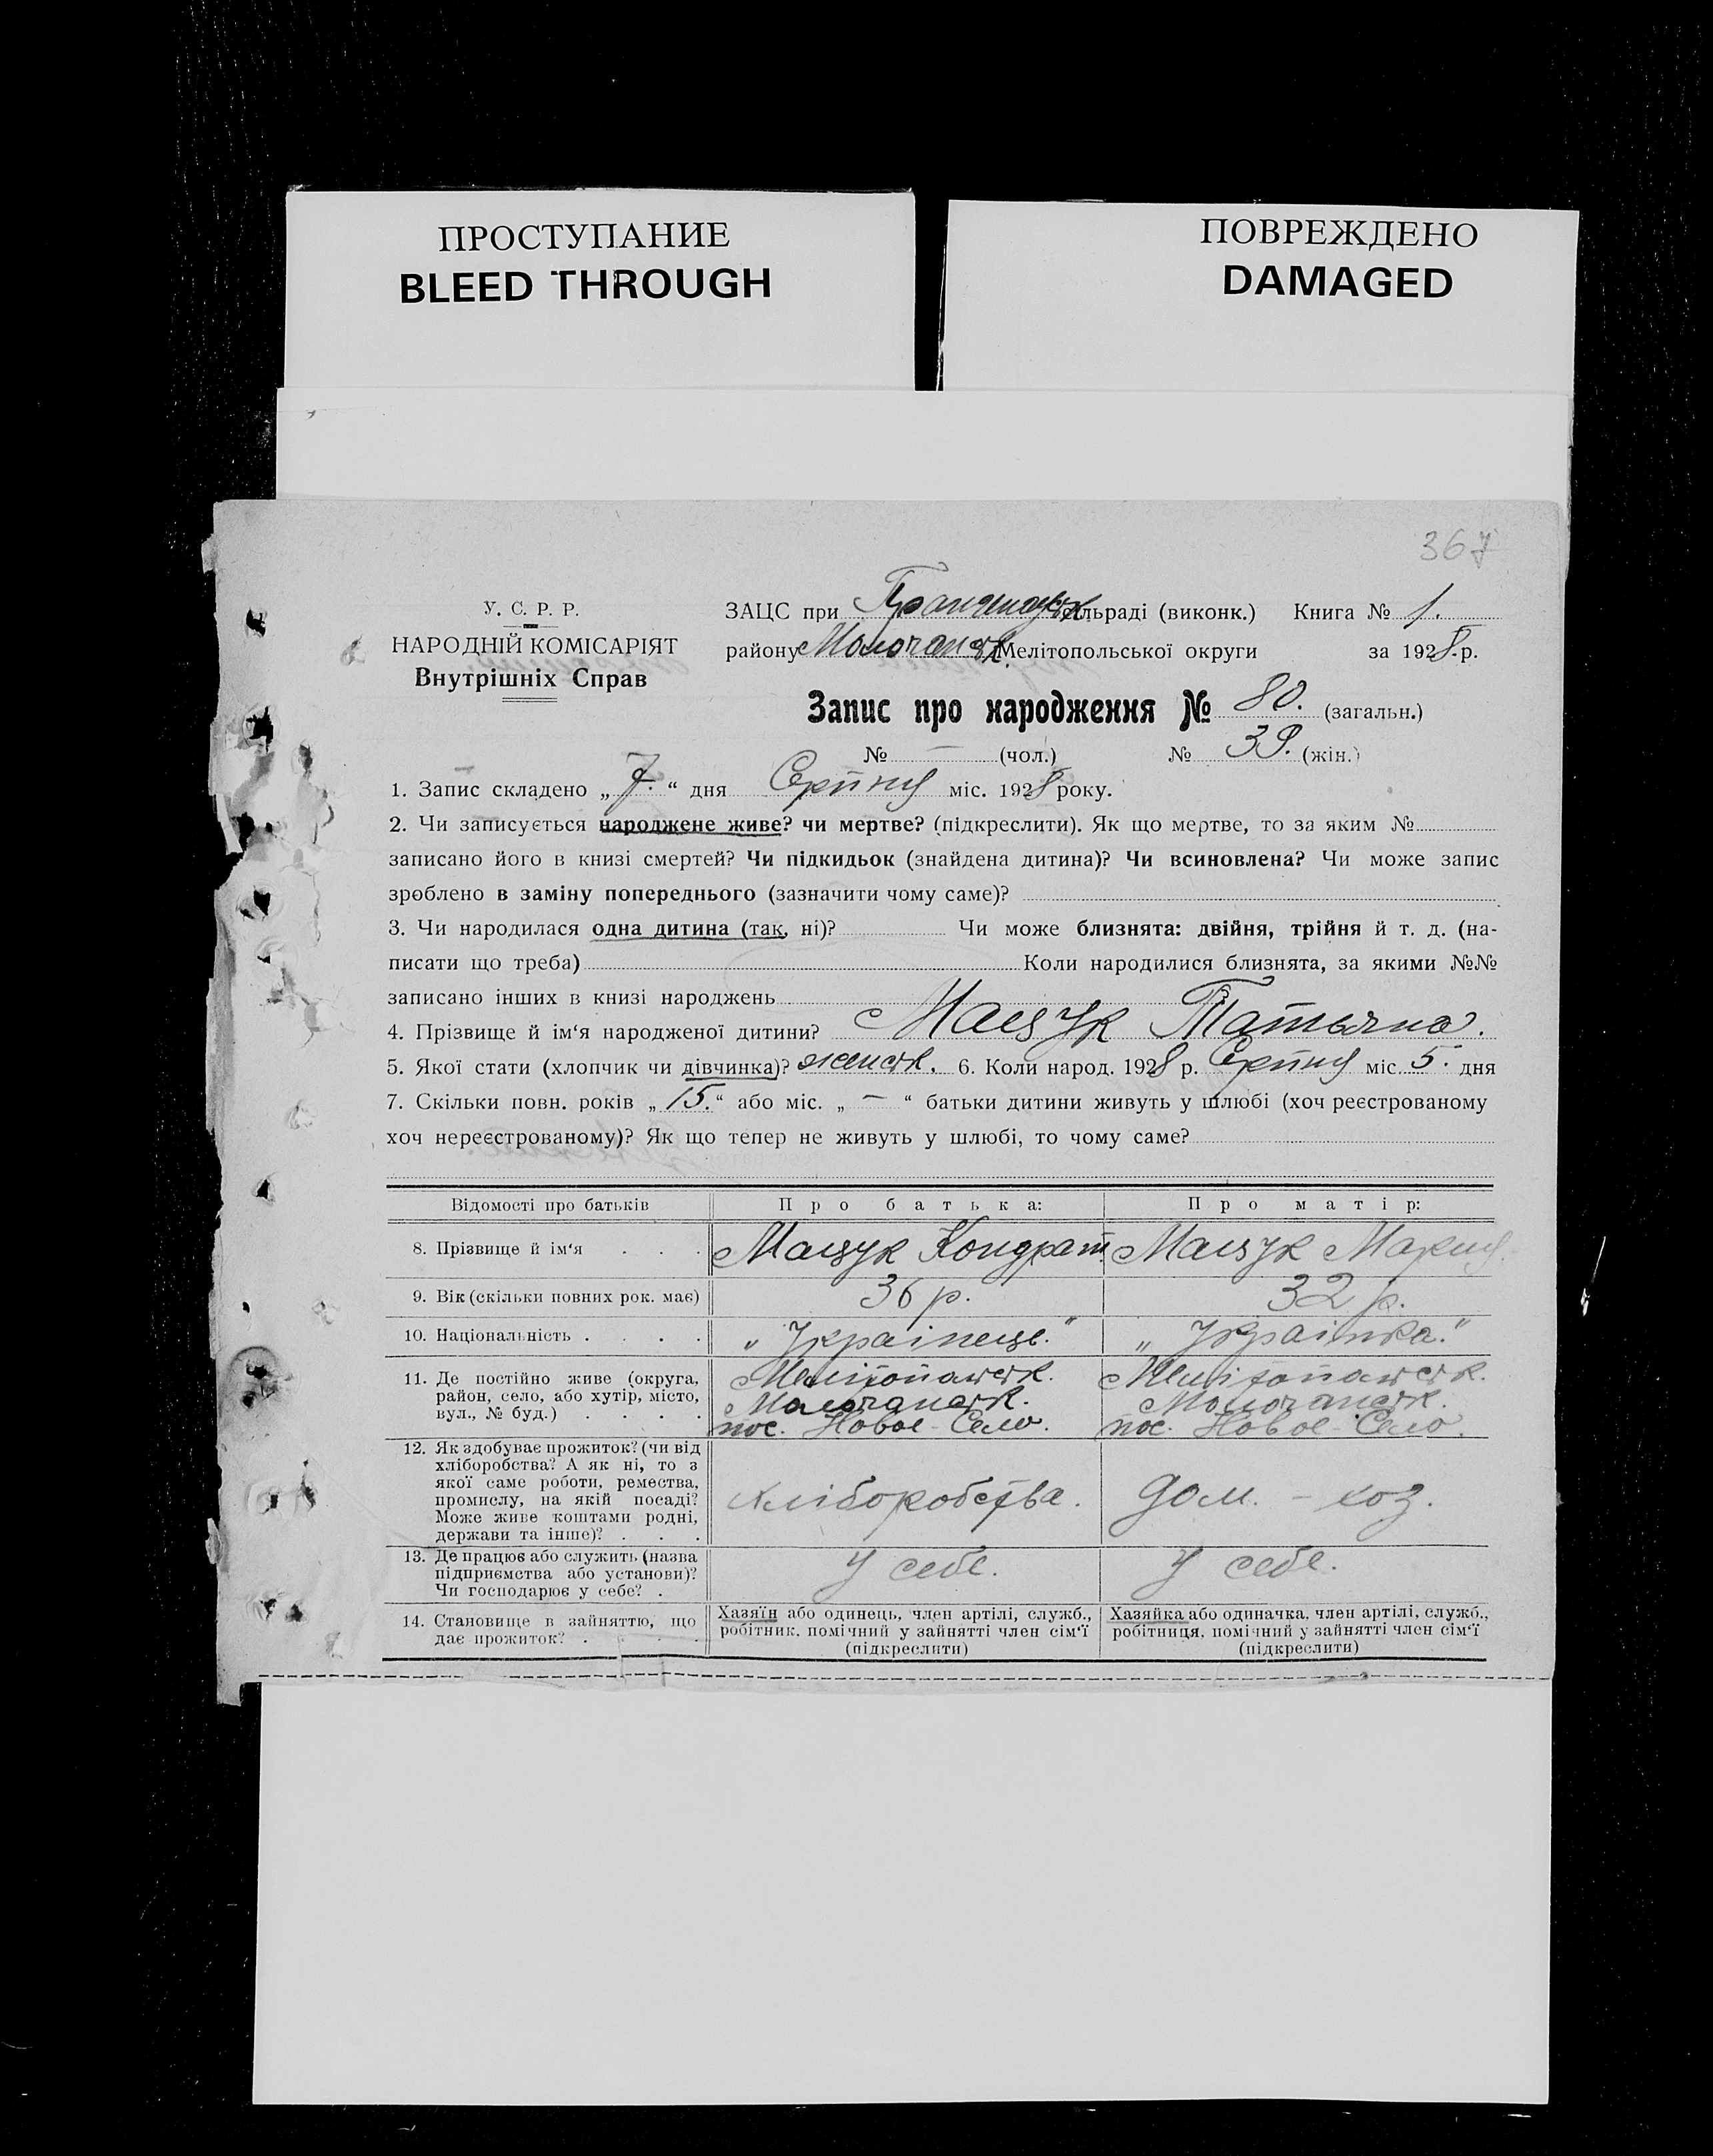 ПРОСТУПАНИЕ
BLEED THROUGH
ПОВРЕЖДЕНО
DAMAGED
367
У. С. Р. Р.
НАРОДНІЙ КОМІСАРІЯТ
Внутрішніх Справ
ЗАЦС при сільраді (виконк.) Книга № 1.
району Молочанськ. Мелітопольської округи за 1928 р.
Запис про народження № 80. (загальн.)
№ — (чол.) № 39. (жін.)
1. Запис складено „ 7. “ дня Серпня міс. 1928 року.
2. Чи записується народжене живе? чи мертве? (підкреслити). Як що мертве, то за яким №
записано його в книзі смертей? Чи підкидьок (знайдена дитина)? Чи всиновлена? Чи може запис
зроблено в заміну попереднього (зазначити чому саме)?
3. Чи народилася одна дитина (так, ні)? Чи може близнята: двійня, трійня й т. д. (на-
писати що треба) Коли народилися близнята, за якими №№
записано інших в книзі народжень
4. Прізвище й ім‘я народженої дитини? Мацук Татьяна.
5. Якої стати (хлопчик чи дівчинка)? женськ. 6. Коли народ. 1928 р. Серпня міс. 5. дня
7. Скільки повн. років „ 15. “ або міс. „ — “ батьки дитини живуть у шлюбі (хоч реєстрованому
хоч нереєстрованому)? Як що тепер не живуть у шлюбі, то чому саме?
Відомості про батьків Про батька: Про матір:
8. Прізвище й ім‘я . . . Мацук Кондрат. Мацук
9. Вік (скільки повних рок. має) 36 р. 32 р.
10. Національність . . . . „Українець.“ „Українка.“
11. Де постійно живе (округа,
район, село, або хутір, місто,
вул., № буд.) . . . .
Мелітопольськ.
Молочанськ.
пос. Новое-Село.
Мелітопольськ.
Молочанськ.
пос. Новое-Село.
12. Як здобуває прожиток? (чи від
хліборобства? А як ні, то з
якої саме роботи, ремества,
промислу, на якій посаді?
Може живе коштами родні,
держави та інше)? . . .
хліборобства.
дом. – хоз.
13. Де працює або служить (назва
підприємства або установи)?
Чи господарює у себе? .
У себе.
У себе.
14. Становище в зайняттю, що
дає прожиток? . . . .
Хазяїн або одинець, член артілі, служб.,
робітник, помічний у зайнятті член сім‘ї
(підкреслити)
Хазяйка або одиначка, член артілі, служб.,
робітниця, помічний у зайнятті член сім‘ї
(підкреслити)